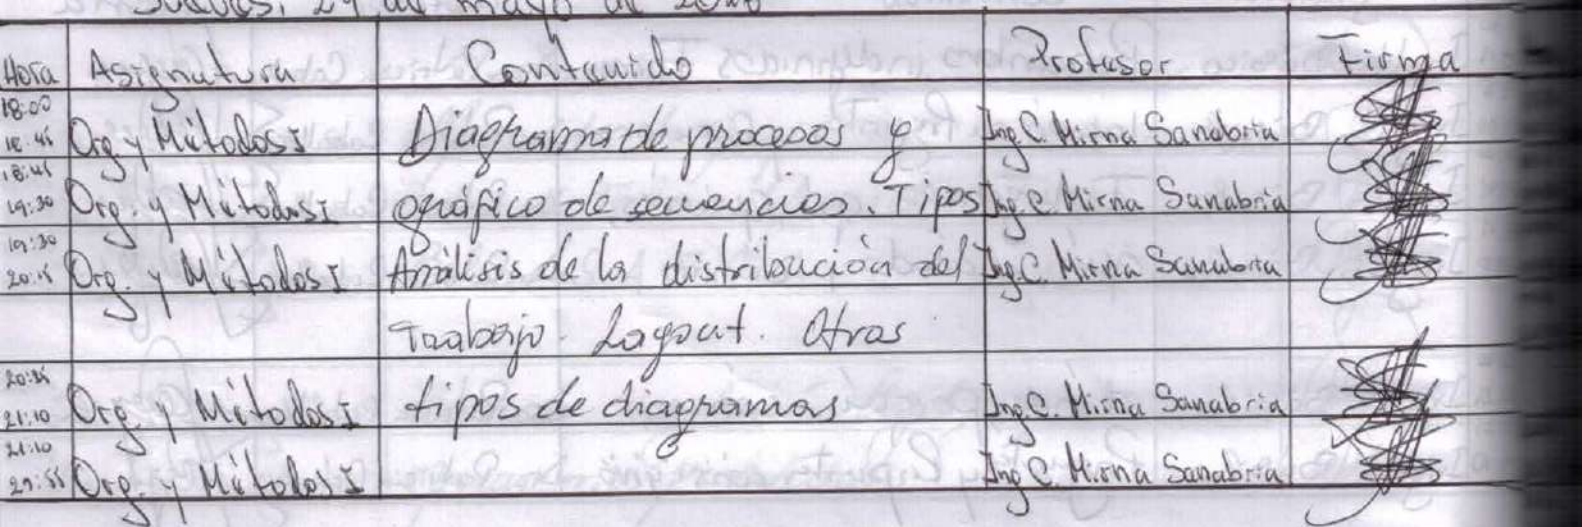 de mayo de
Hora Asignatura Contenido Profesor Firma
18:00
18:45 Org y Métodos I Diagrama de procesos y Ing. C. Mirna Sanabria
18:45
19:30 Org. y Métodos I gráfico de secuencias. Tipos Ing. C. Mirna Sanabria
19:30
20:15 Org. y Métodos I Análisis de la distribución del Ing. C. Mirna Sanabria
Trabajo. Layout. Otras
20:25
21:10 Org. y Métodos I tipos de diagramas Ing. C. Mirna Sanabria
21:10
21:55 Org. y Métodos I Ing. C. Mirna Sanabria